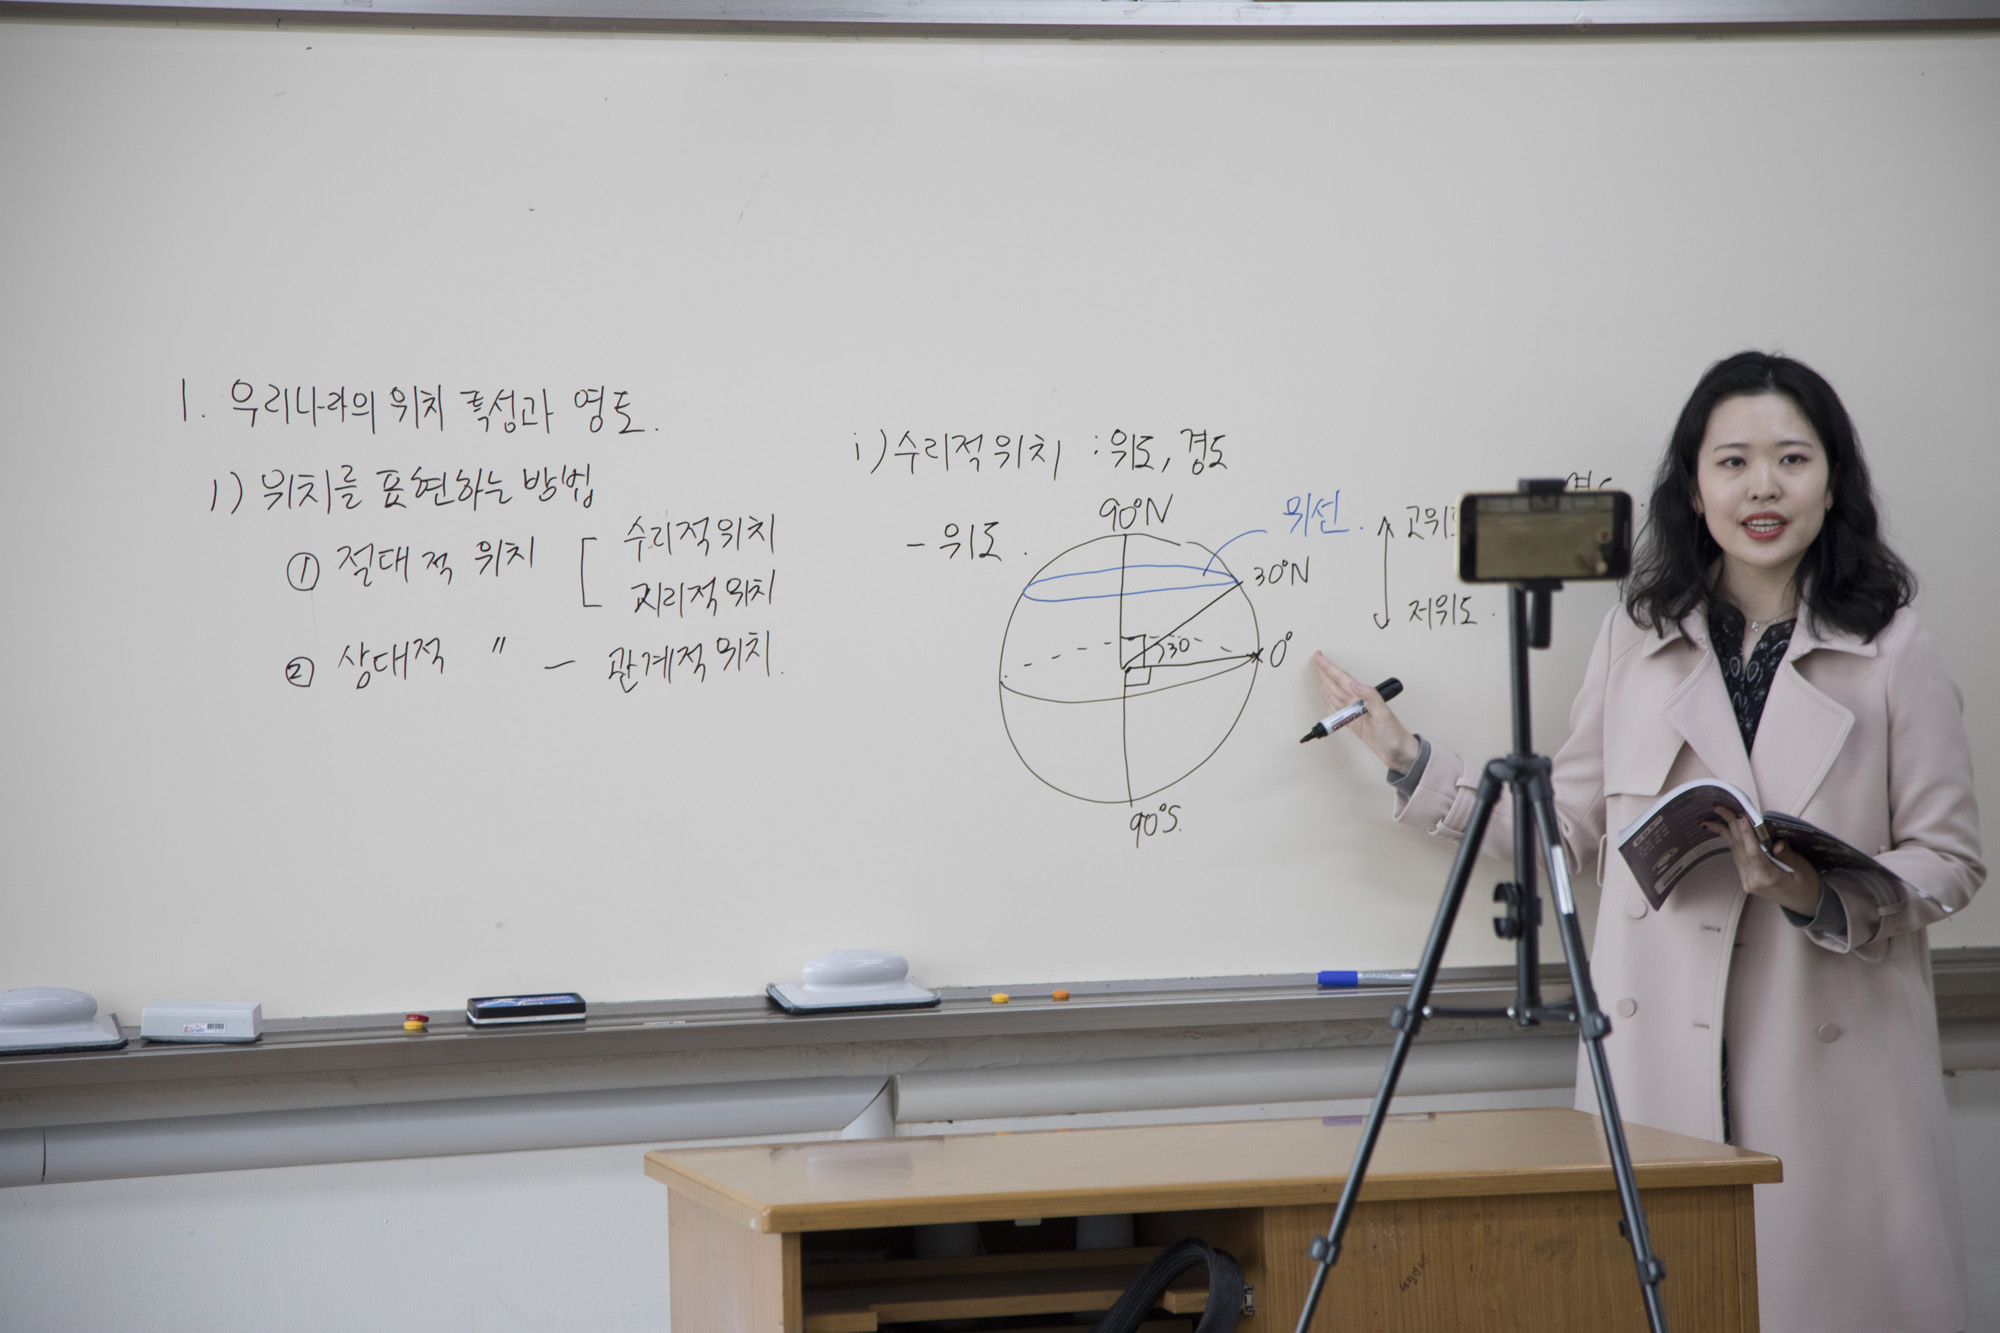 1. 우리나라의 위치 특성과 영토.
1) 위치를 표현하는 방법
① 절대적 위치
수리적위치
지리적위치
② 상대적 〃 - 관계적위치.
i) 수리적위치 : 위도, 경도
- 위도.
90°N
위선.
30°N
30
0°
90°S.
고위도
저위도.